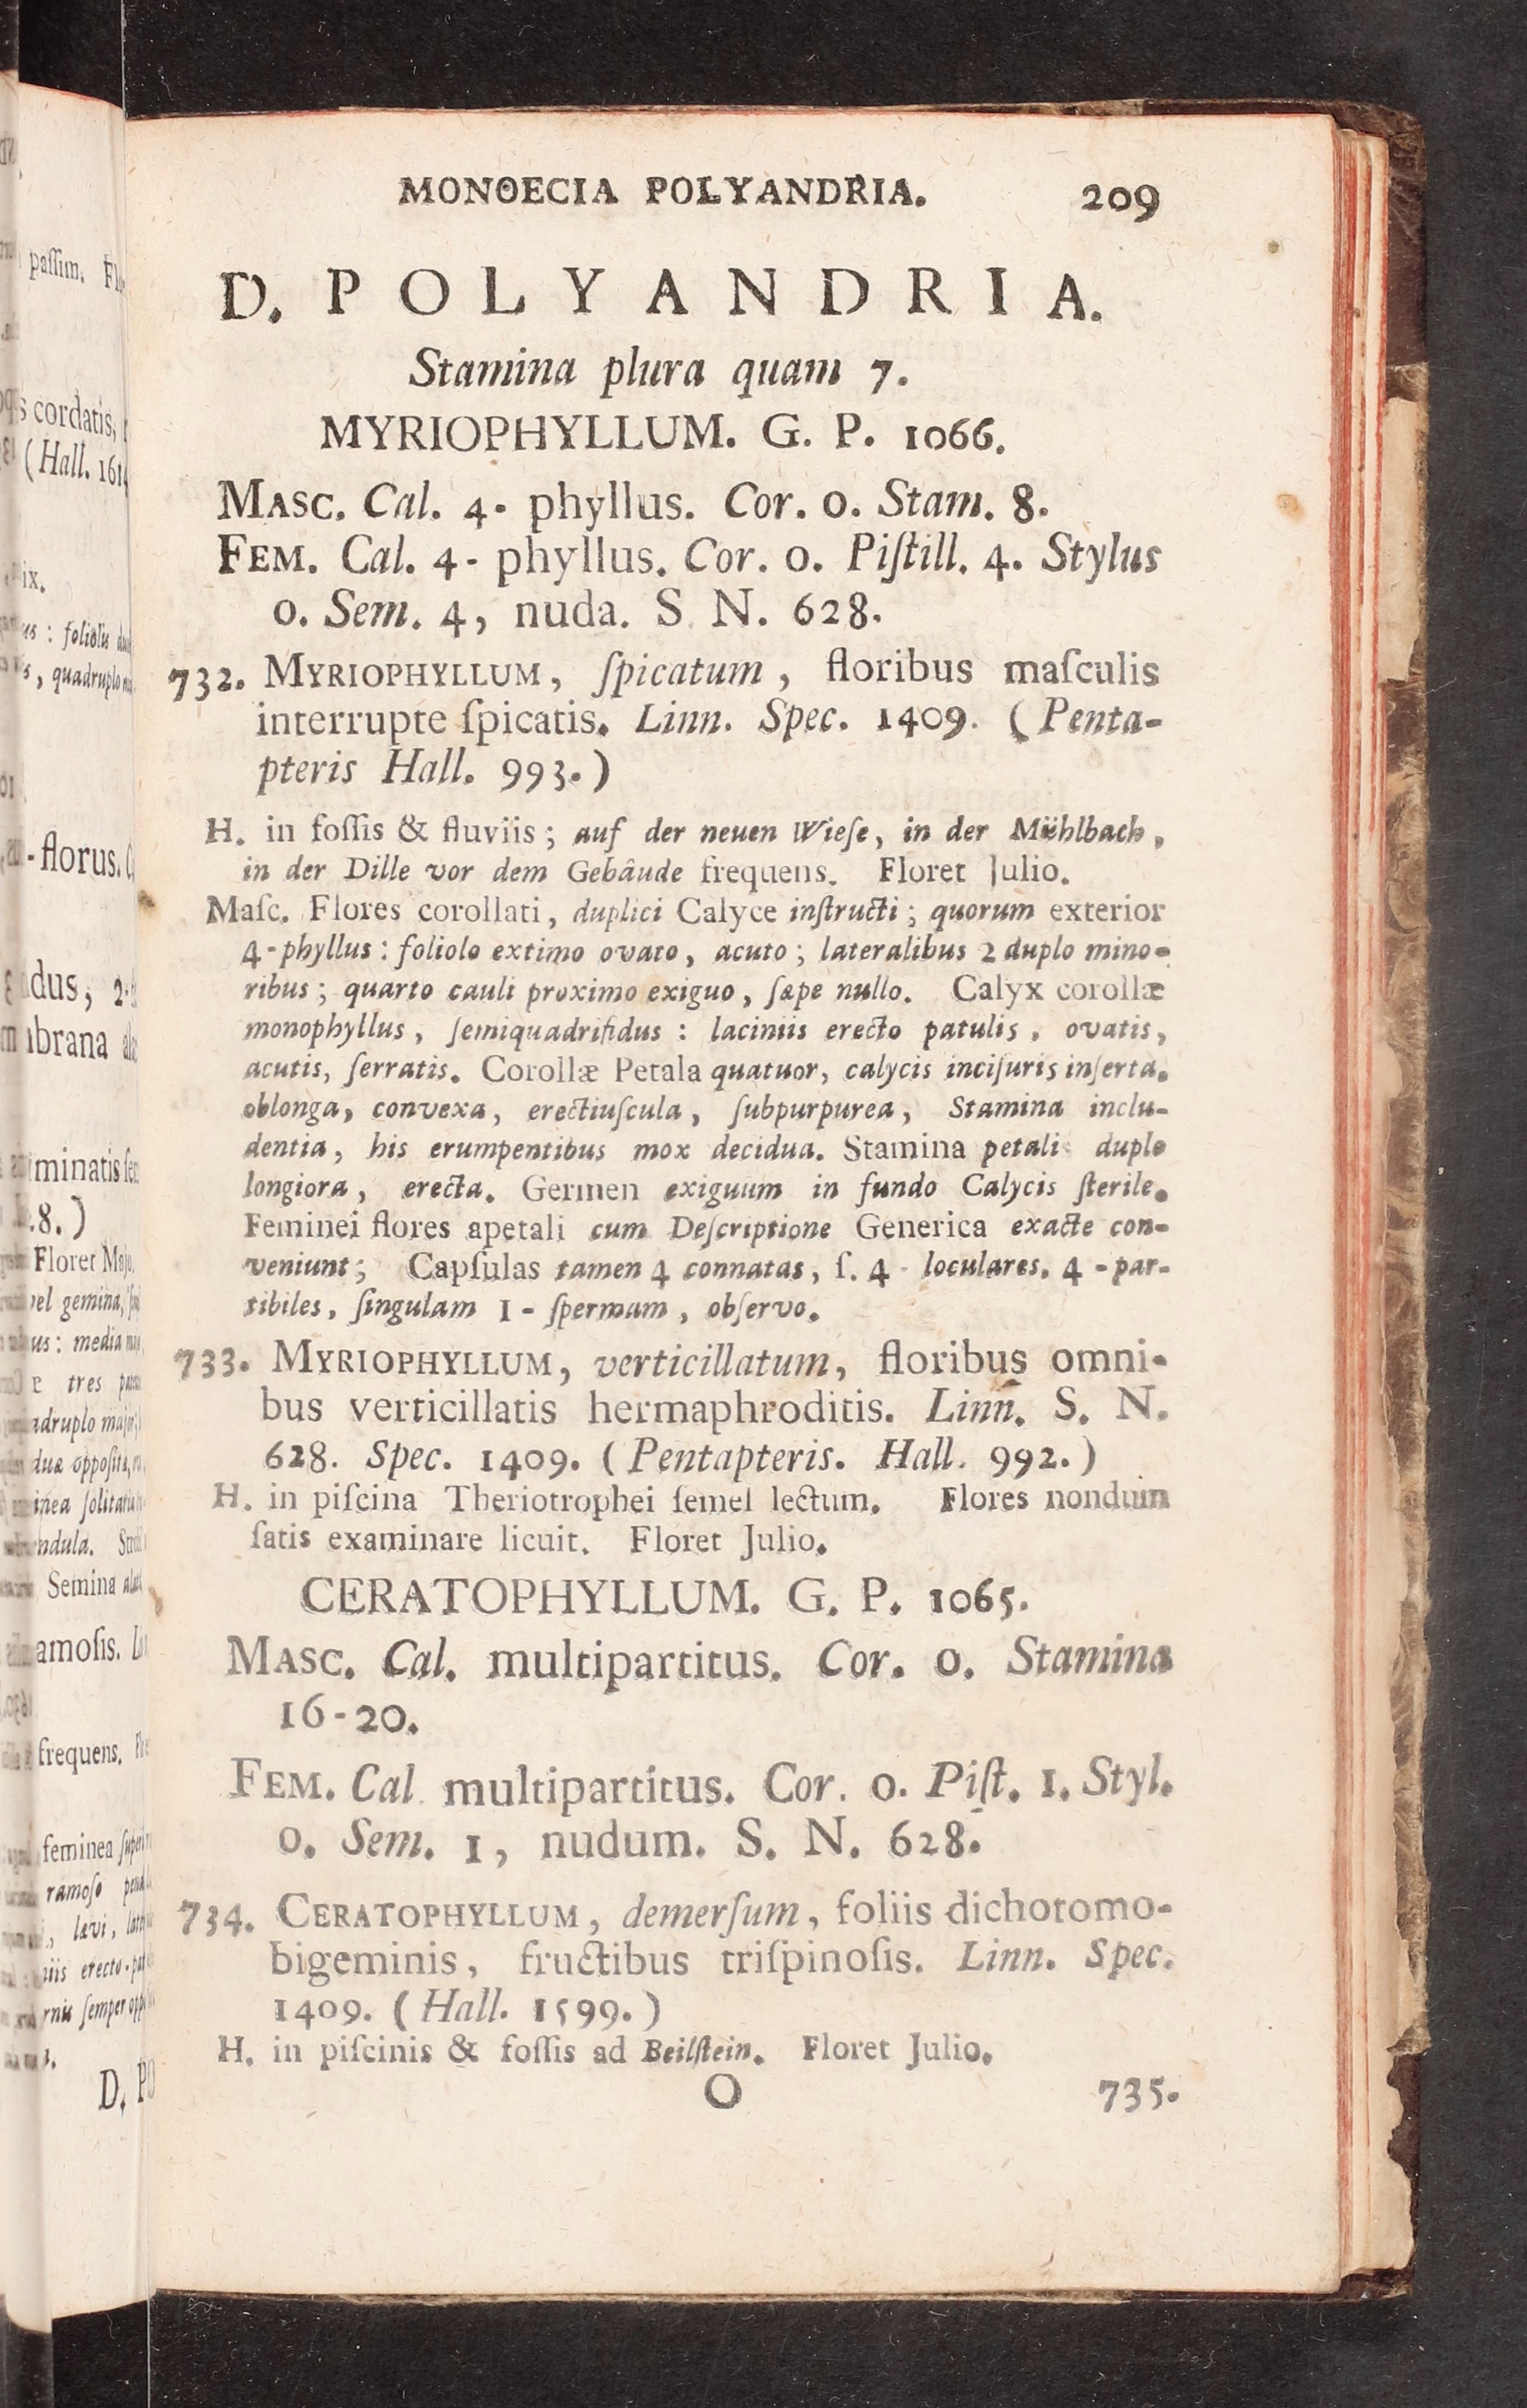 MONOECIA POLYANDRIA. 209
D. POLYANDRIA.
Stamina plura quam 7.
MYRIOPHYLLUM. G. P. 1066.
MASC. Cal. 4-phyllus. Cor. 0. Stam. 8.
FEM. Cal. 4-phyllus. Cor. 0. Piſtill. 4. Stylus
0. Sem. 4, nuda. S. N. 628.
732. MYRIOPHYLLUM, ſpicatum, floribus maſculis
interrupte ſpicatis. Linn. Spec. 1409. (Penta-
pteris Hall. 993.)
H. in foſſis & fluviis; auf der neuen Wieſe, in der Mühlbach,
in der Dille vor dem Gebâude frequens. Floret Julio.
Maſc. Flores corollati, duplici Calyce inſtructi; quorum exterior
4-phyllus: foliolo extimo ovato, acuto; lateralibus 2 duplo mino-
ribus; quarto cauli proximo exiguo, ſæpe nullo. Calyx corollæ
monophyllus, ſemiquadrifidus: laciniis erecto patulis, ovatis,
acutis, ſerratis. Corollæ Petala quatuor, calycis inciſuris inſerta.
oblonga, convexa, erectiuſcula, ſubpurpurea, Stamina inclu-
dentia, his erumpentibus mox decidua. Stamina petalis duplo
longiora, erecta. Germen exiguum in fundo Calycis ſterile.
Feminei flores apetali cum Deſcriptione Generica exacte con-
veniunt; Capſulas tamen 4 connatas, ſ. 4-loculares, 4-par-
tibiles, ſingulam 1-ſpermam, obſervo.
733. MYRIOPHYLLUM, verticillatum, floribus omni-
bus verticillatis hermaphroditis. Linn. S. N.
628. Spec. 1409. (Pentapteris. Hall. 992.)
H. in piſcina Theriotrophei ſemel lectum. Flores nondum
ſatis examinare licuit. Floret Julio.
CERATOPHYLLUM. G. P. 1065.
MASC. Cal. multipartitus. Cor. 0. Stamina
16-20.
FEM. Cal. multipartitus. Cor. 0. Piſt. 1. Styl.
0. Sem. 1, nudum. S. N. 628.
734. CERATOPHYLLUM, demerſum, foliis dichotomo-
bigeminis, fructibus triſpinoſis. Linn. Spec.
1409. (Hall. 1599.)
H. in piſcinis & foſſis ad Beilſtein. Floret Julio.
O 735.